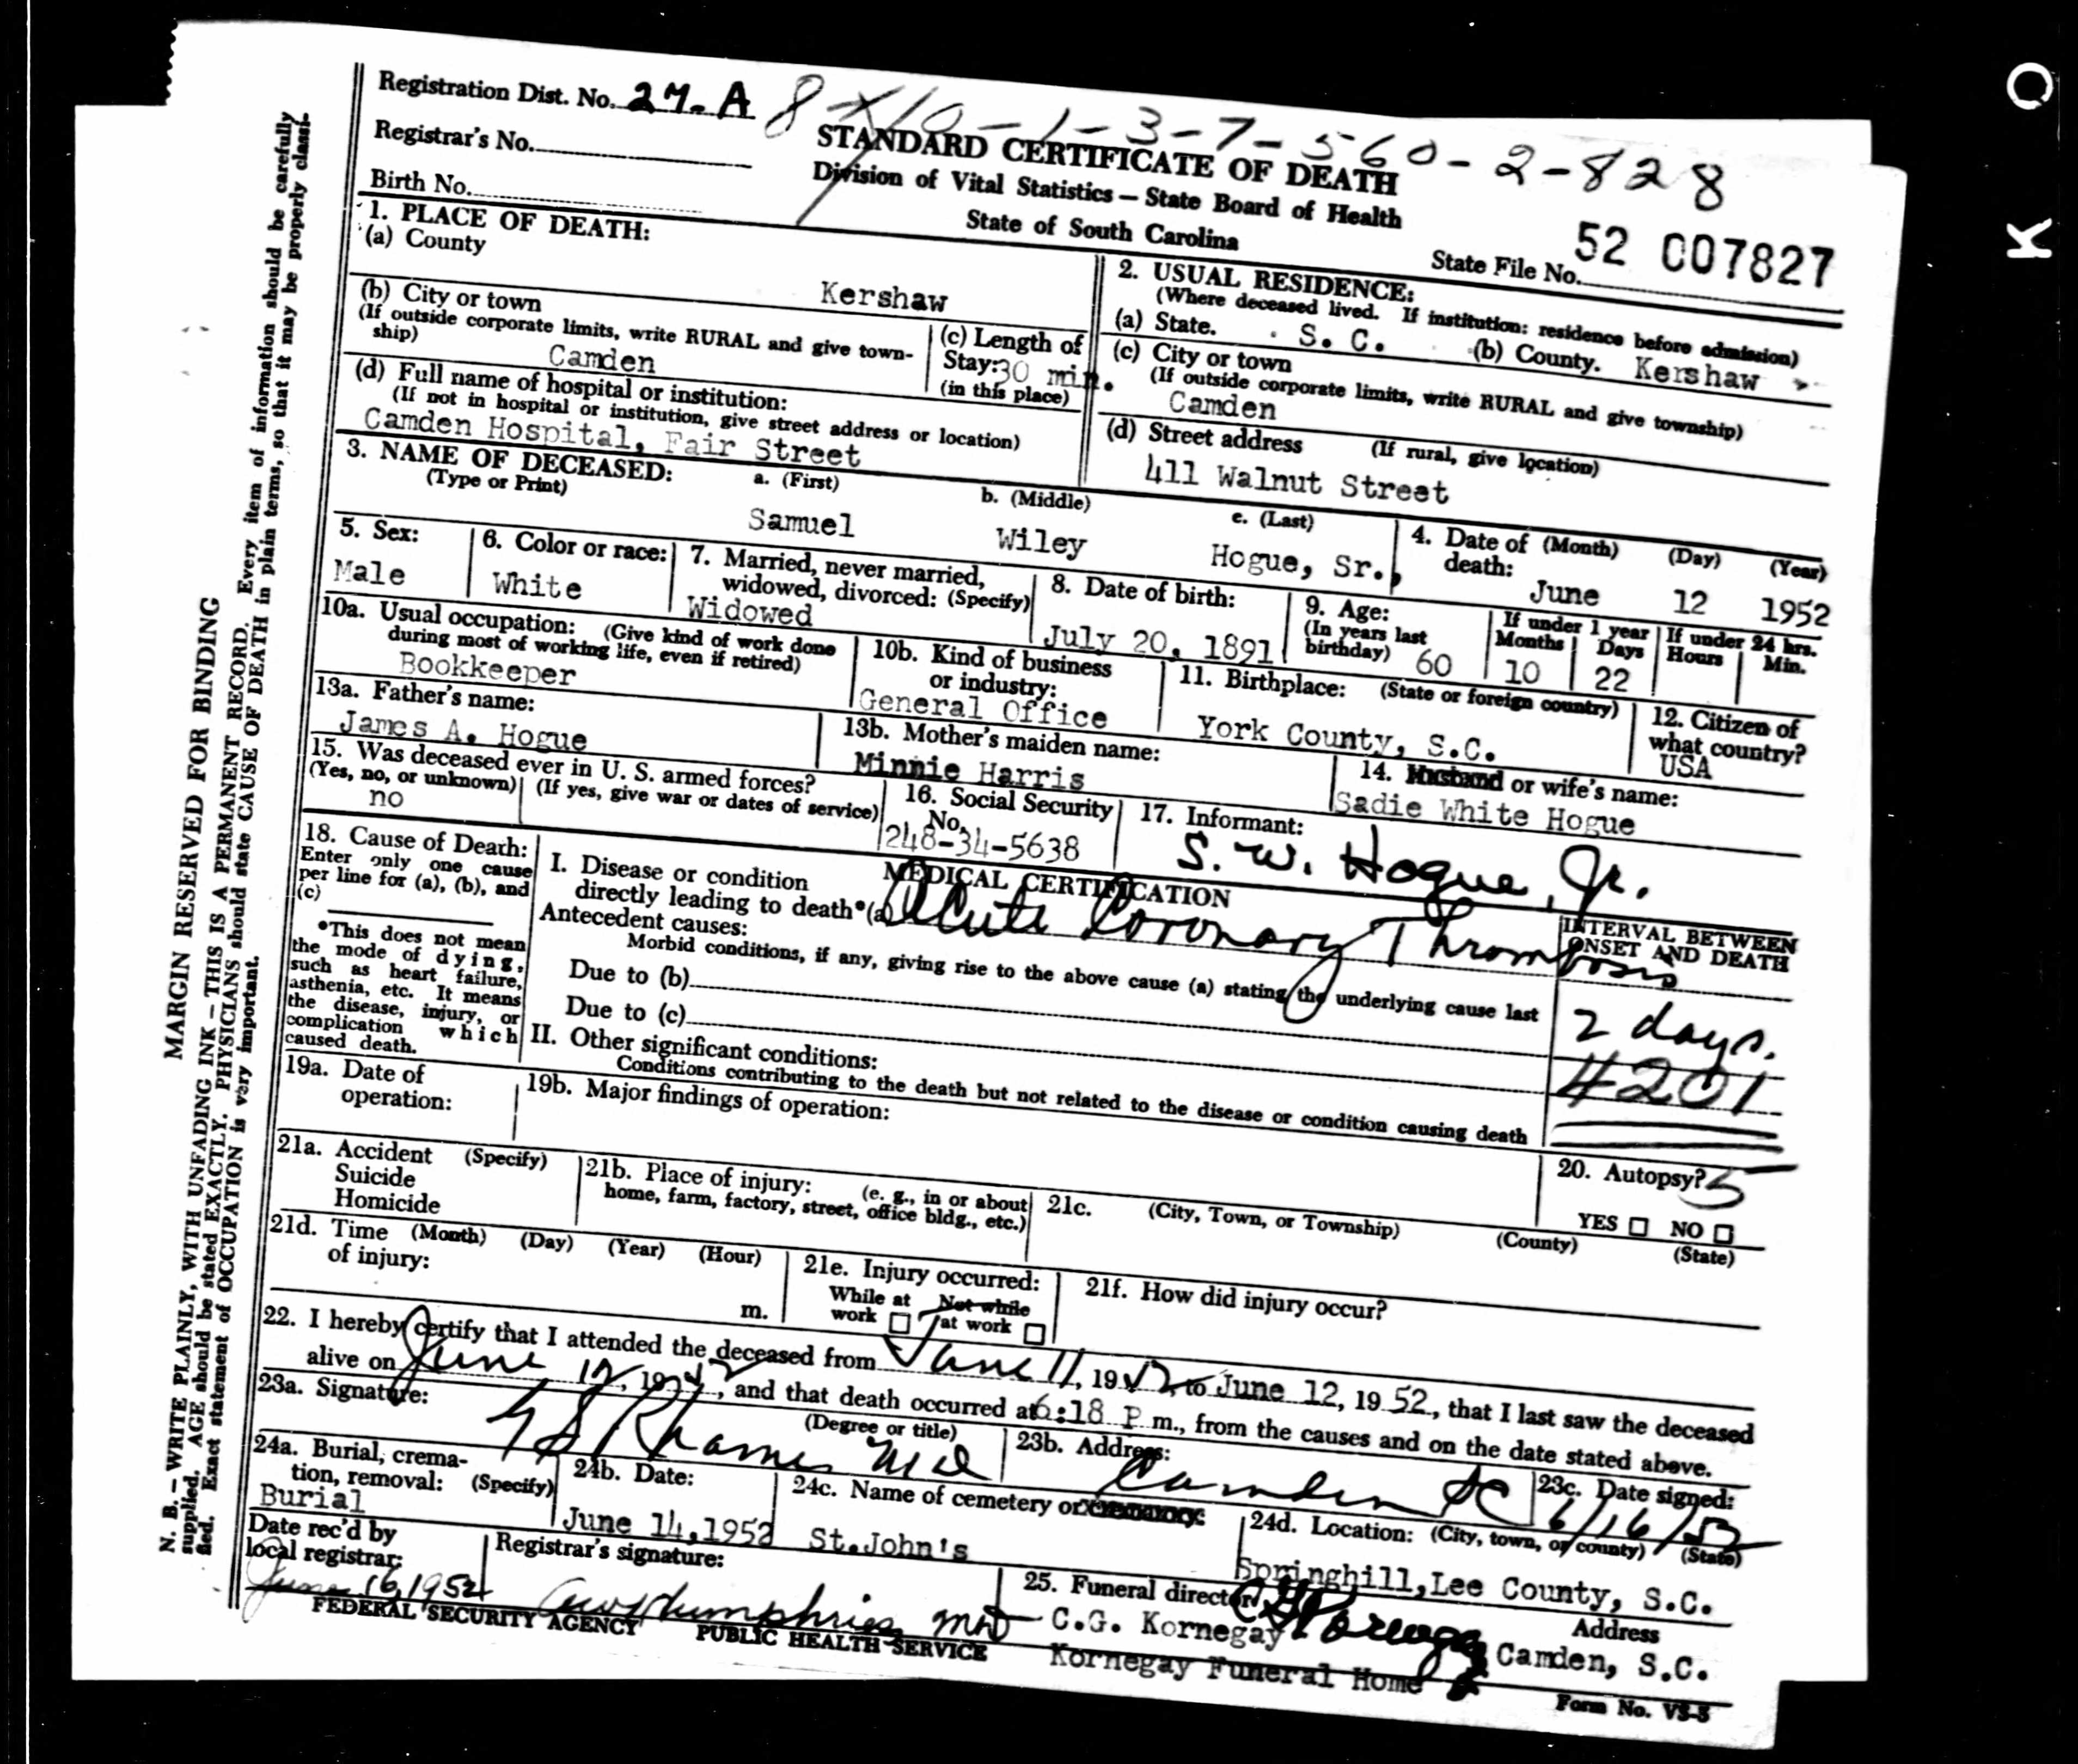 Registration Dist. No. 27-A
8 X10-1-3-7-560-2-828
Registrar's No.
STANDARD CERTIFICATE OF DEATH
Birth No.
Division of Vital Statistics — State Board of Health
State of South Carolina
State File No. 52 007827
1. PLACE OF DEATH:
(a) County
Kershaw
2. USUAL RESIDENCE:
(Where deceased lived. If institution: residence before admission)
(a) State. S. C. (b) County. Kershaw
(b) City or town
(If outside corporate limits, write RURAL and give town-
ship) Camden
(c) Length of
Stay: 30 min.
(in this place)
(c) City or town
(If outside corporate limits, write RURAL and give township)
Camden
(d) Full name of hospital or institution:
(If not in hospital or institution, give street address or location)
Camden Hospital, Fair Street
(d) Street address (If rural, give location)
411 Walnut Street
3. NAME OF DECEASED: a. (First) b. (Middle) c. (Last)
(Type or Print)
Samuel Wiley Hogue, Sr.,
4. Date of (Month) (Day) (Year)
death:
June 12 1952
5. Sex:
Male
6. Color or race:
White
7. Married, never married,
widowed, divorced: (Specify)
Widowed
8. Date of birth:
July 20, 1891
9. Age:
(In years last
birthday) 60
If under 1 year
Months Days
10 22
If under 24 hrs.
Hours Min.
10a. Usual occupation: (Give kind of work done
during most of working life, even if retired)
Bookkeeper
10b. Kind of business
or industry:
General Office
11. Birthplace: (State or foreign country)
York County, S.C.
12. Citizen of
what country?
USA
13a. Father's name:
James A. Hogue
13b. Mother's maiden name:
Minnie Harris
14. Husband or wife's name:
Sadie White Hogue
15. Was deceased ever in U. S. armed forces?
(Yes, no, or unknown) (If yes, give war or dates of service)
no
16. Social Security
No.
248-34-5638
17. Informant:
S. W. Hogue, Jr.
18. Cause of Death:
Enter only one cause
per line for (a), (b), and
(c)
*This does not mean
the mode of dying,
such as heart failure,
asthenia, etc. It means
the disease, injury, or
complication which
caused death.
MEDICAL CERTIFICATION
I. Disease or condition
directly leading to death*(a) Acute Coronary Thrombosis
Antecedent causes:
Morbid conditions, if any, giving rise to the above cause (a) stating the underlying cause last
Due to (b)
Due to (c)
II. Other significant conditions:
Conditions contributing to the death but not related to the disease or condition causing death
INTERVAL BETWEEN
ONSET AND DEATH
2 days.
4201
19a. Date of
operation:
19b. Major findings of operation:
20. Autopsy? 5
YES NO
21a. Accident (Specify)
Suicide
Homicide
21b. Place of injury: (e. g., in or about
home, farm, factory, street, office bldg., etc.)
21c. (City, Town, or Township) (County) (State)
21d. Time (Month) (Day) (Year) (Hour)
of injury:
m.
21e. Injury occurred:
While at Not while
work at work
21f. How did injury occur?
22. I hereby certify that I attended the deceased from June 11, 1952, to June 12, 1952, that I last saw the deceased
alive on June 12, 1952, and that death occurred at 6:18 P m., from the causes and on the date stated above.
23a. Signature: (Degree or title)
Rhame MD
23b. Address:
Camden SC
23c. Date signed:
6/16/52
24a. Burial, crema-
tion, removal: (Specify)
Burial
24b. Date:
June 14, 1952
24c. Name of cemetery or
St. John's
24d. Location: (City, town, or county) (State)
Springhill, Lee County, S.C.
Date rec'd by
local registrar:
June 16, 1952
Registrar's signature:
Humphries MD
25. Funeral director
C.G. Kornegay
Kornegay Funeral Home
Address
Camden, S.C.
FEDERAL SECURITY AGENCY PUBLIC HEALTH SERVICE
Form No. VS-5
MARGIN RESERVED FOR BINDING
N. B. — WRITE PLAINLY, WITH UNFADING INK — THIS IS A PERMANENT RECORD. Every item of information should be carefully
supplied. AGE should be stated EXACTLY. PHYSICIANS should state CAUSE OF DEATH in plain terms, so that it may be properly classi-
fied. Exact statement of OCCUPATION is very important.
K O